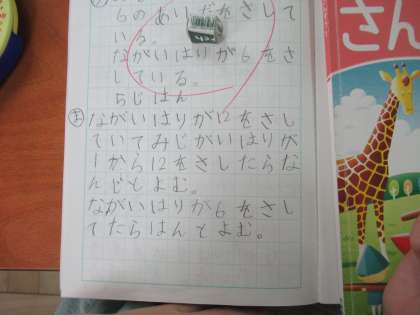 らのあいだをさして
いる。
ながいはりが6をさ
している。
5じはん
ま ながいはりが12をさし
ていてみじがいはりが
1から12をさしたらな
んじとよむ。
ながいはりが6をさし
てたらはんとよむ。
さん